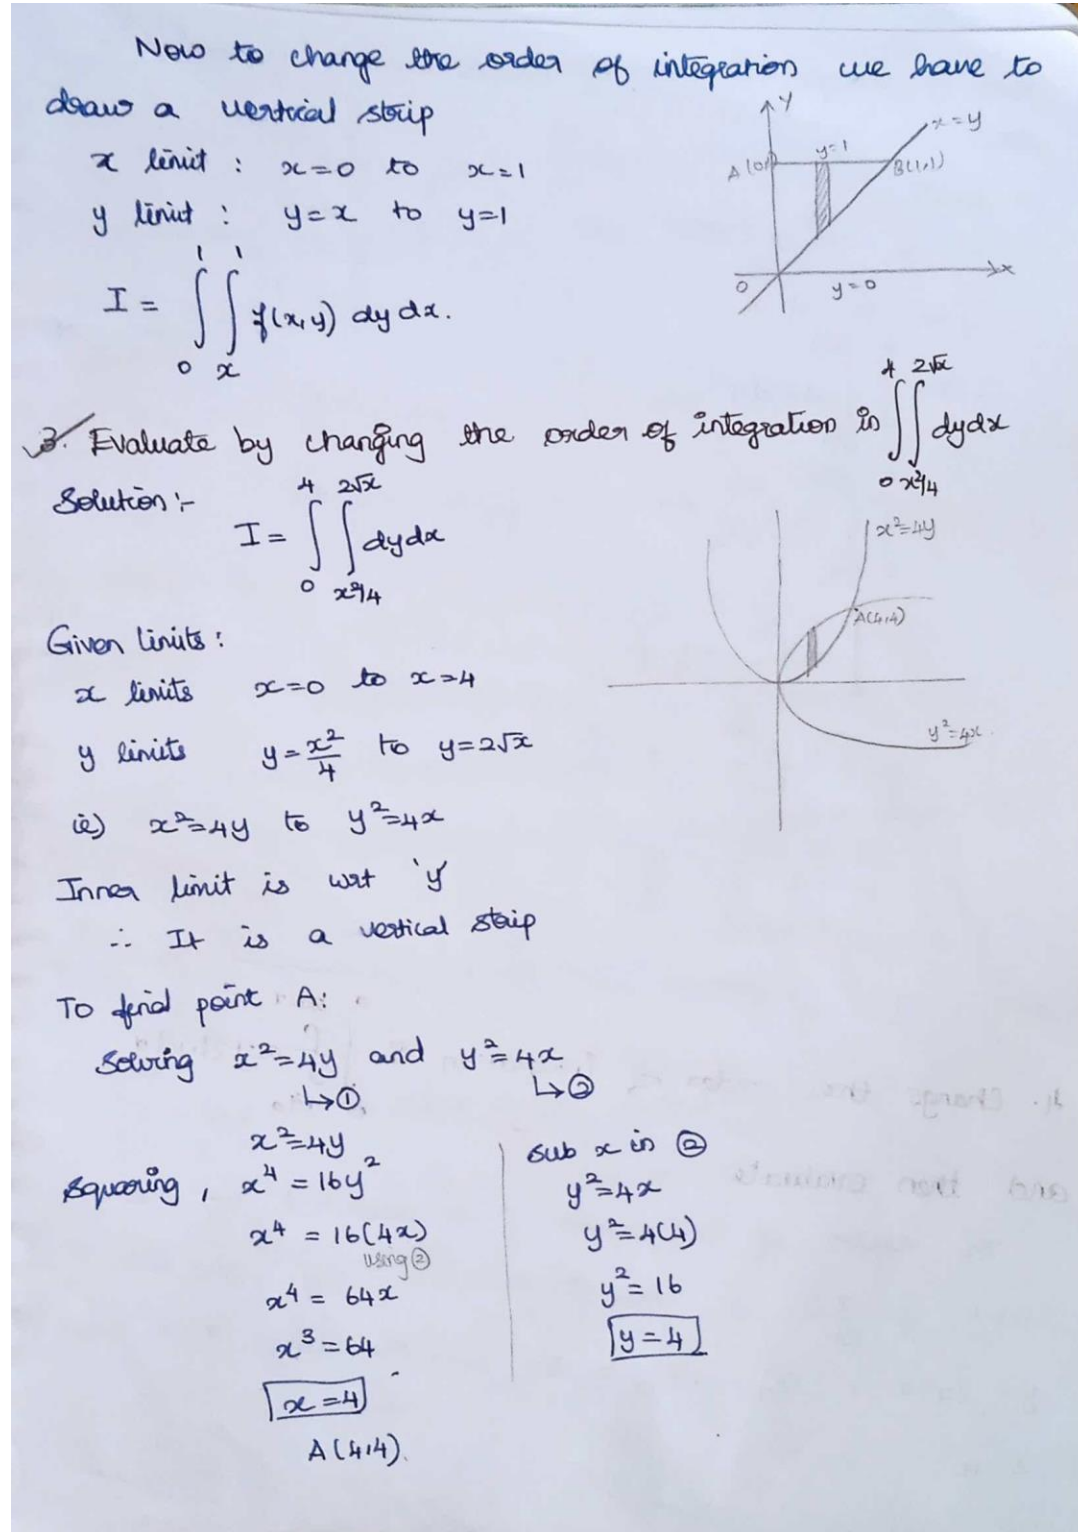 Now to change the order of integration we have to
draw a vertical strip
x limit : x=0 to x=1
y limit : y=x to y=1
I = ∫₀¹ ∫ₓ¹ f(x,y) dy dx.
Y
x=y
y=1
A(0,
B(1,1)
0
y=0
x
3. Evaluate by changing the order of integration in ∫₀⁴ ∫_{x²/4}^{2√x} dydx
Solution:-
I = ∫₀⁴ ∫_{x²/4}^{2√x} dydx
x²=4y
A(4,4)
y²=4x
Given limits:
x limits x=0 to x=4
y limits y=x²/4 to y=2√x
ie) x²=4y to y²=4x
Inner limit is wrt 'y'
∴ It is a vertical strip
To find point A:
Solving x²=4y and y²=4x
↳① ↳②
x²=4y
Squaring, x⁴ = 16y²
x⁴ = 16(4x)
using ②
x⁴ = 64x
x³=64
x=4
A(4,4).
sub x in ②
y²=4x
y²=4(4)
y²=16
y=4